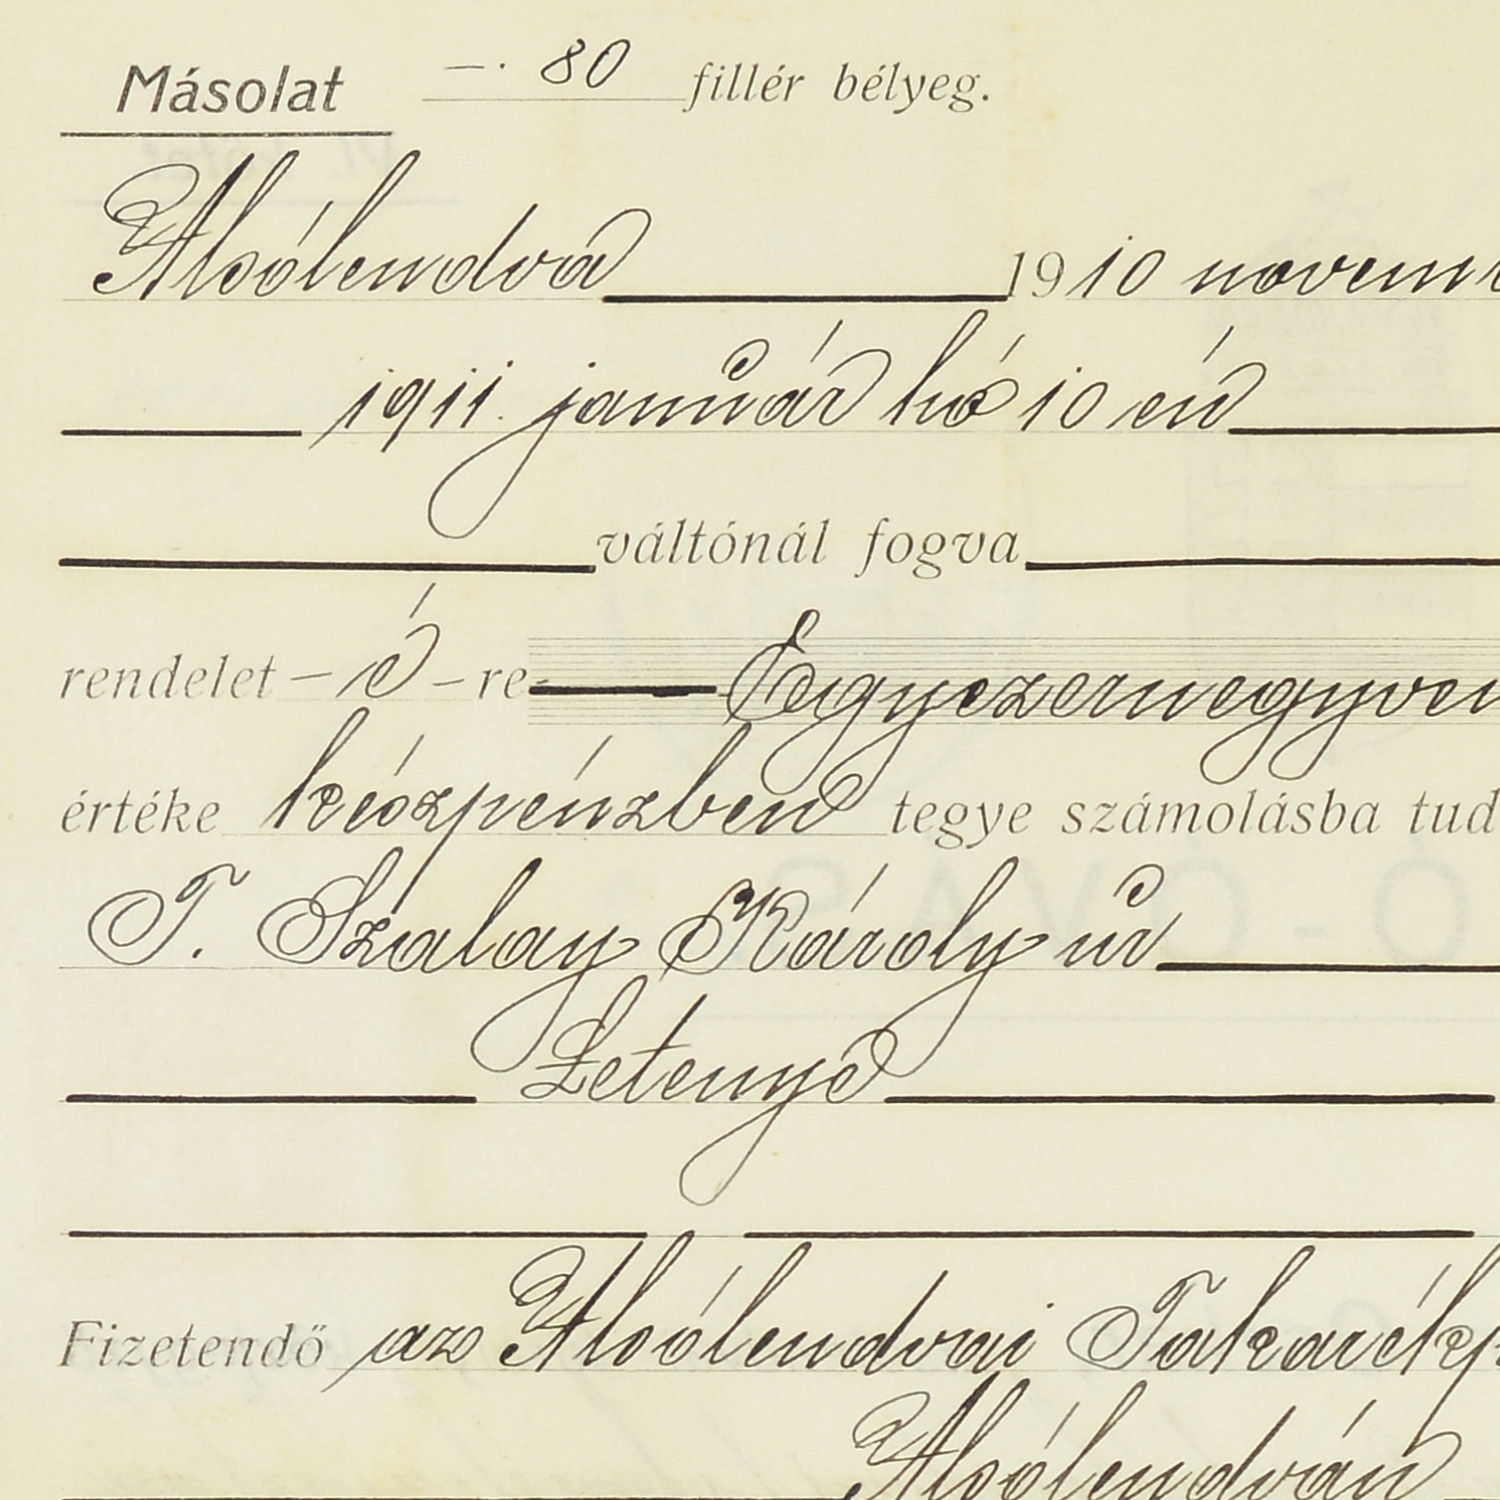 Másolat —. 80 fillér bélyeg.
Alsólendva 1910 novem
1911. január hó 10 én
váltónál fogva
rendelet – ő – re Egyezernegyven
értéke készpénzben tegye számolásba tud
T. Szalay Károly úr
Letenye
Fizetendő az Alsólendvai Takarékp
Alsólendván